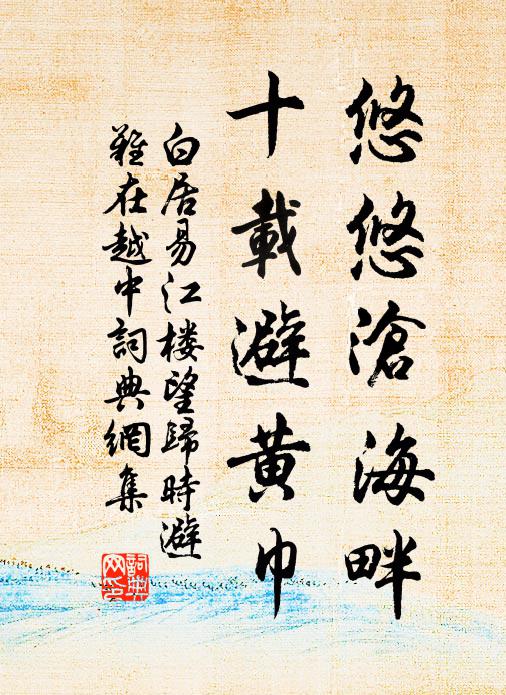 悠悠滄海畔
十載避黄巾
白居易江楼望歸時避
難在越中詞典網集